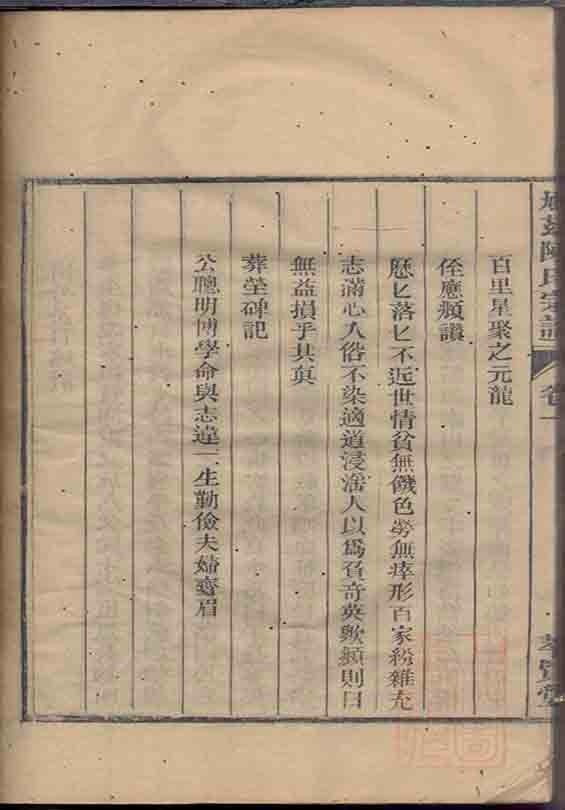 陳氏宗譜 卷一
百里星聚之元龍
侄應頻讚
懸匕落匕不近世情貧無饑色勞無瘁形百家紛雜充
志滿心人俗不染適道浸滛人以為負奇英歟頻則曰
無益損乎其真
葬塋碑記
公聰明博學命與志違一生勤儉夫婦齊眉